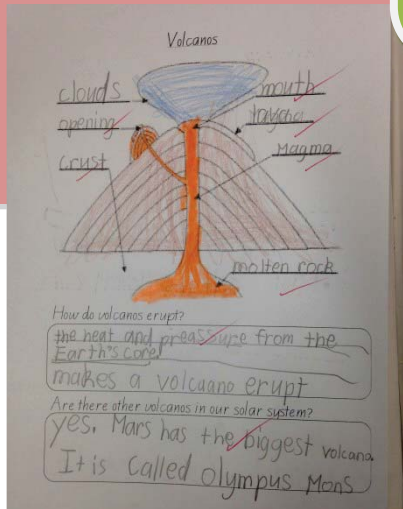 Volcanos
clouds
mouth
opening
Magma
Crust
molten rock
How do volcanos erupt?
the heat and preassure from the
Earth's core
makes a volcaano erupt
Are there other volcanos in our solar system?
yes. Mars has the biggest volcano
It is called Olympus Mons